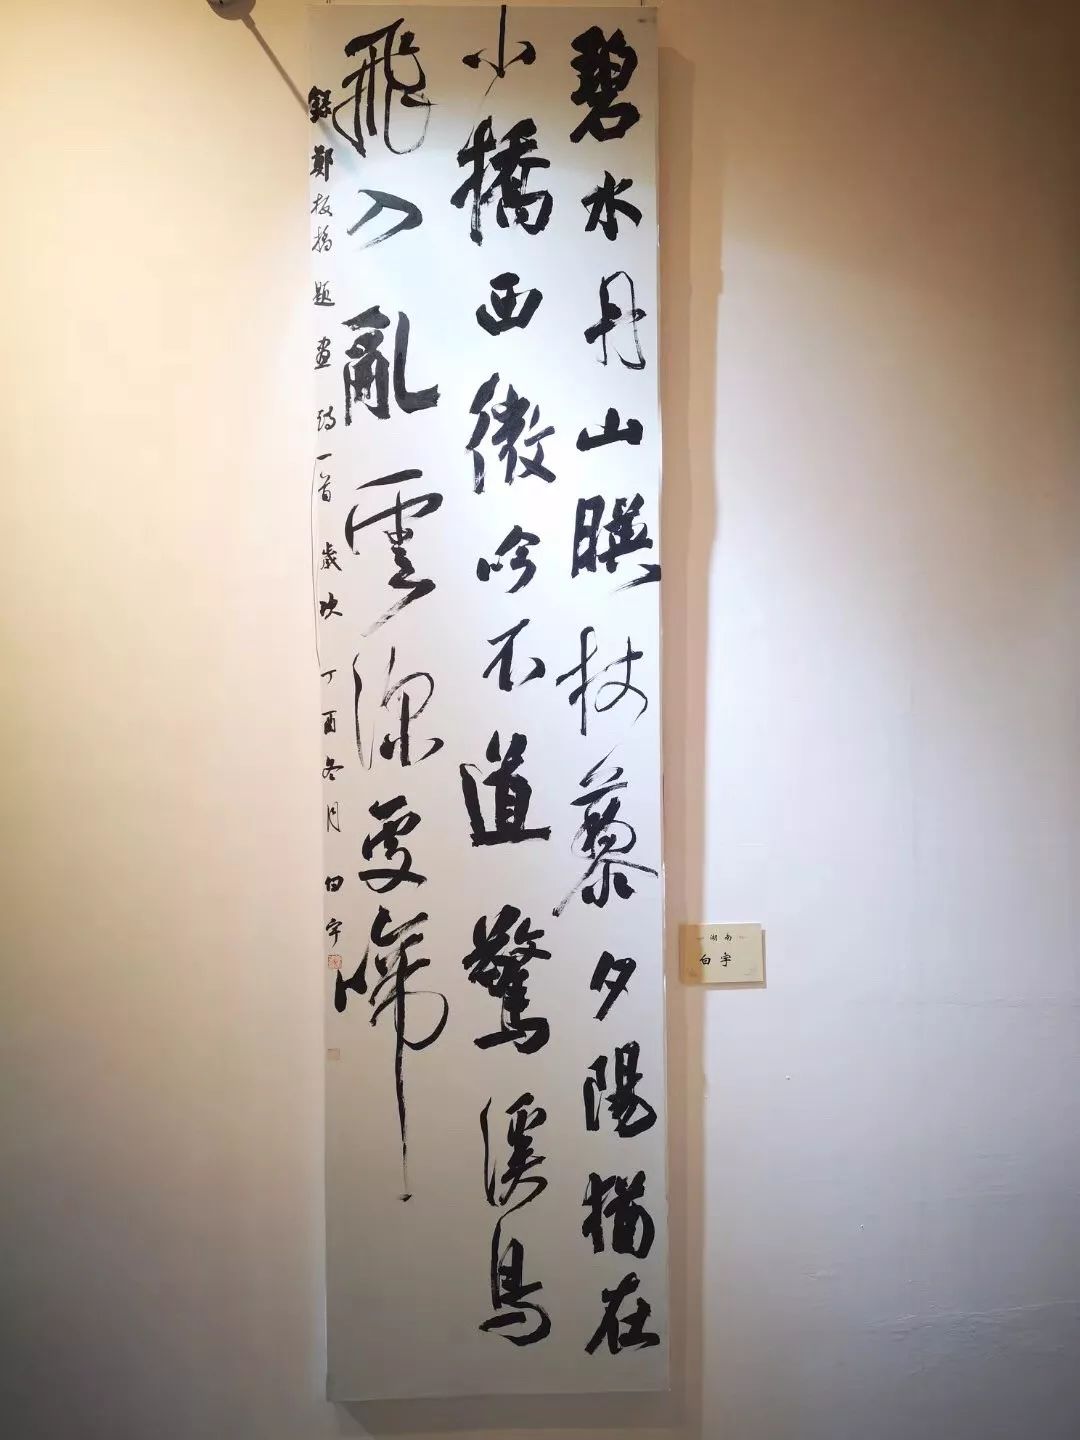 碧水丹山暎杖藜夕陽猶在
小橋西微吟不道驚溪鳥
飛入亂雲深處啼
錄鄭板橋題畫詩一首歲次丁酉冬月白宇
湖南
白宇